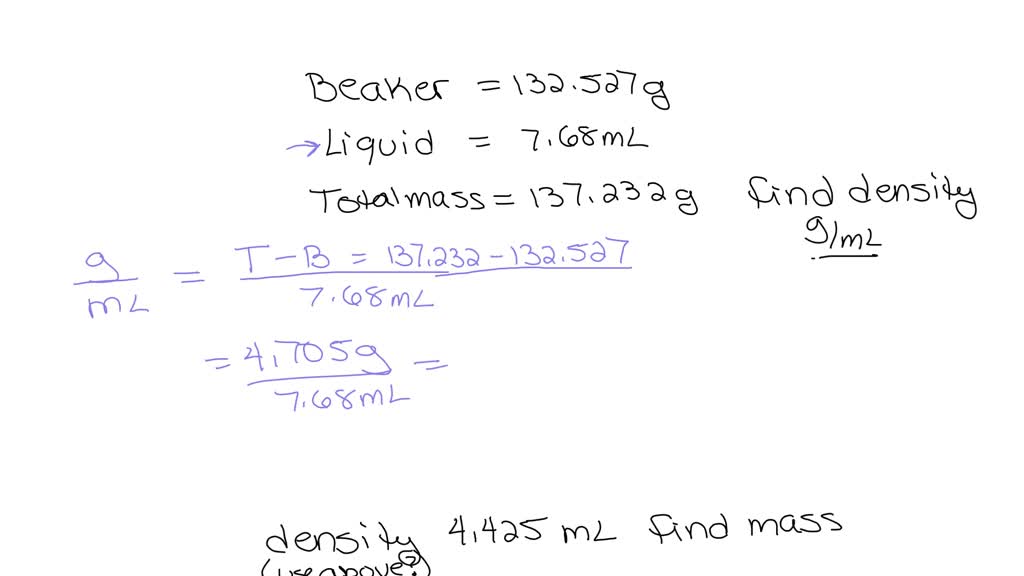 Beaker = 132.527g
→Liquid = 7.68mL
Total mass = 137.232g find density
g/mL
g/mL = T-B = 137.232-132.527 / 7.68mL
= 4.705g / 7.68mL =
density 4.425 mL find mass
(use above?)